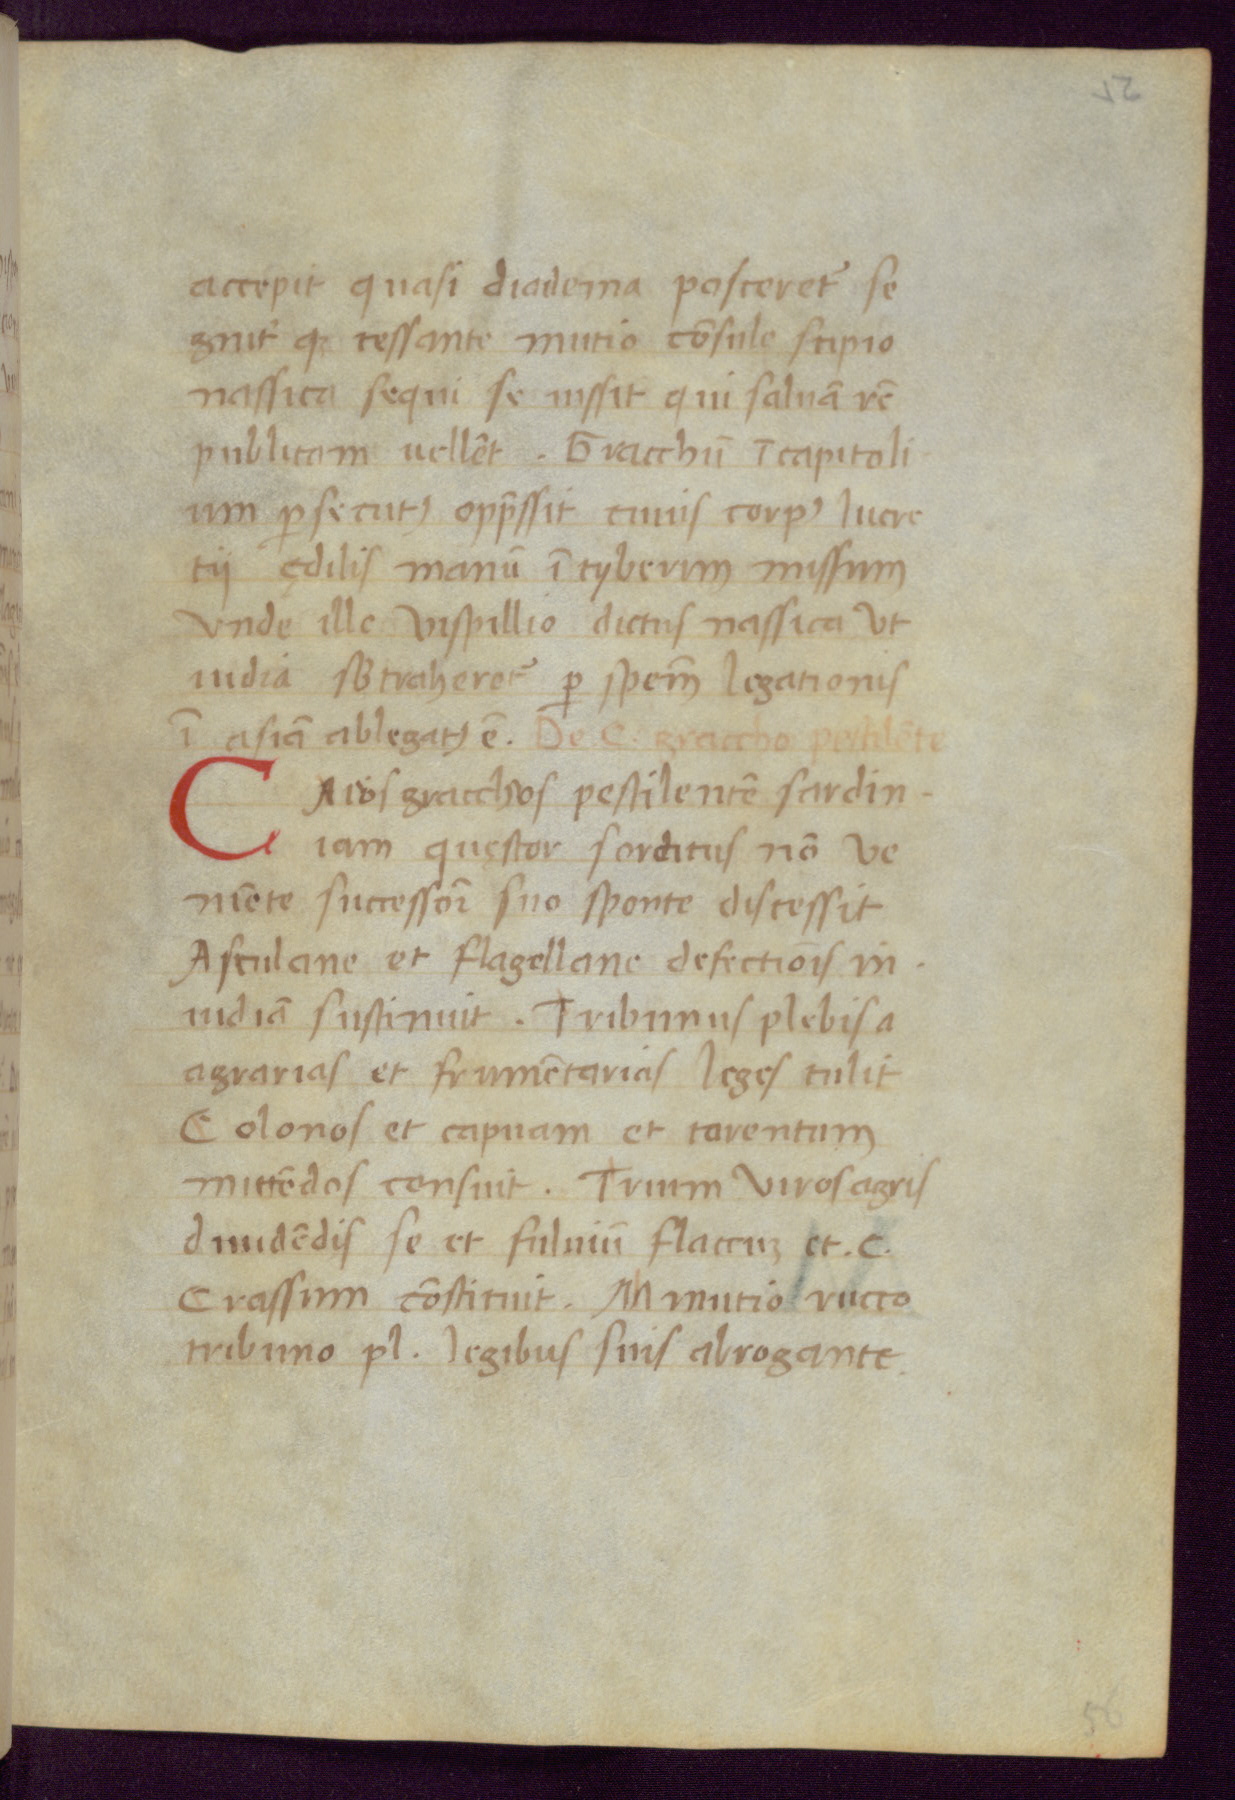 accepit quasi diadema posceret᷒ se
gnit᷒ qꝫ cessante mutio cōsule scipio
nassica sequi se iussit qui saluā rē
publicam uellēt . Gracchū ī capitoli
um ꝑsecutꝰ opp̄ssit cuius corpꝰ lucre
tij ędilis manū ī tyberim missum
Vnde ille Vispillio dictus nassica Vt
iudia sƀtraheret᷒ ꝑ spem̄ legationis
ī asiā ablegatꝰ ē. De C. graccho pestilēte
CAios gracchos pestilentē sardin -
iam quęstor sorditus nō Ve
niēte successorī suo sponte discessit
Asculane et flagellane defectiōis in -
uidiā sustinuit . Tribunus plebis a
agrarias et frumētarias leges tulit
Colonos et capuam et tarentum
mittēdos censuit . Trium Viros agris
diuidēdis se et fuluiū flaccuꝫ et . C.
Crassum cōstituit . M mutio rucco
tribuno pl . legibus suis abrogante